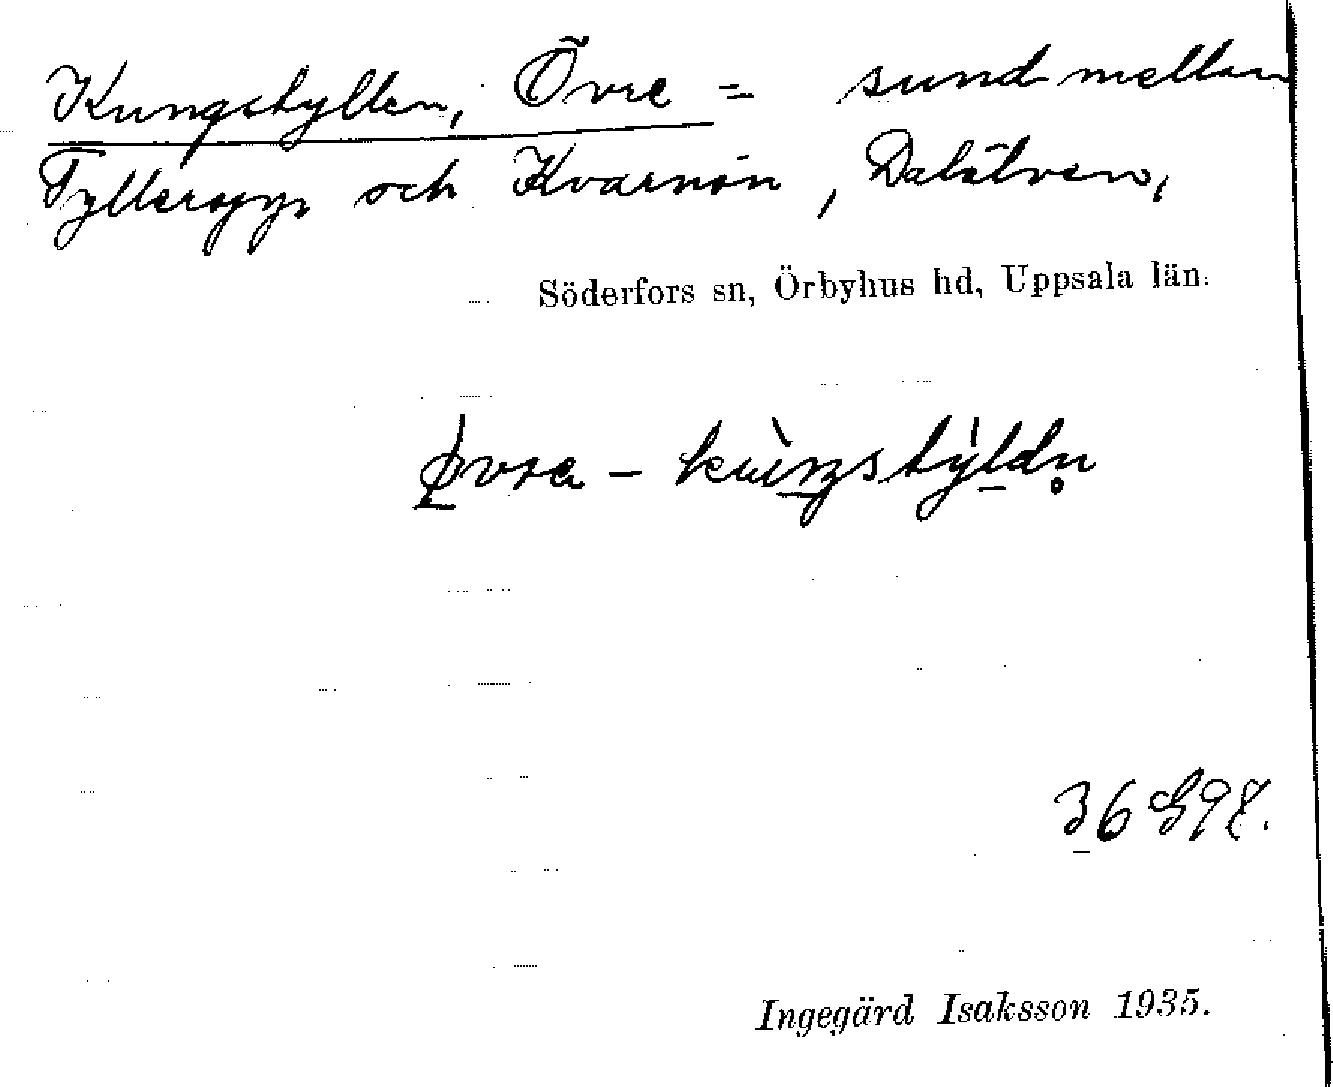 Kungshyllen, Övre = sund mellan
Tyllergyp och Kvarnön, Dalälven,
Söderfors sn, Örbyhus hd, Uppsala län.
Ingegärd Isaksson 1935.